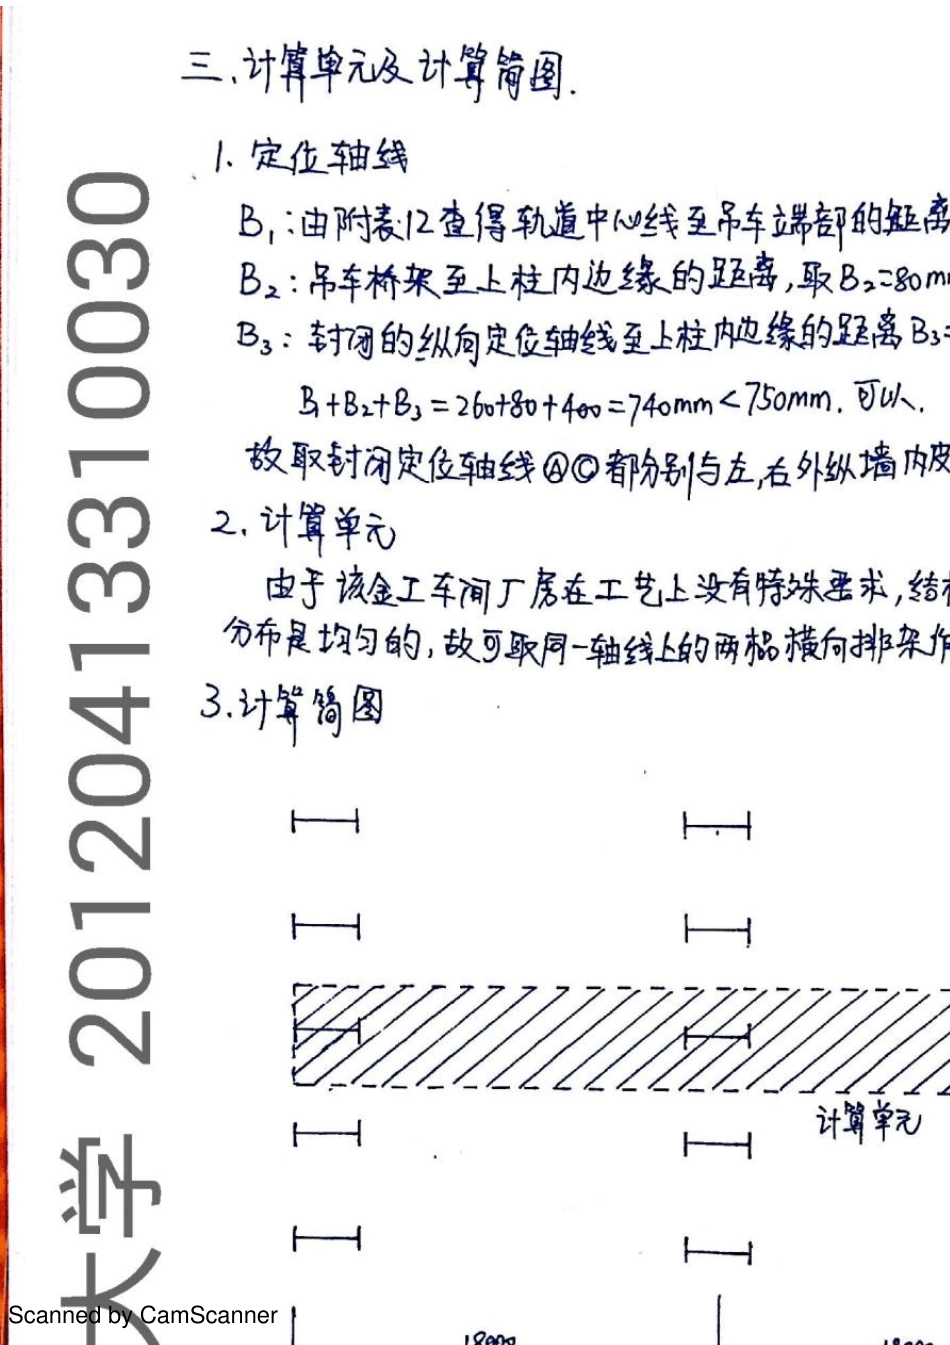 三、计算单元及计算简图.
1. 定位轴线
B₁:由附表12查得轨道中心线至吊车端部的距离
B₂:吊车桥架至上柱内边缘的距离,取B₂=80mm
B₃:封闭的纵向定位轴线至上柱内边缘的距离B₃=
B₁+B₂+B₃=260+80+400=740mm<750mm. 可以.
故取封闭定位轴线ⒶⒸ都分别与左,右外纵墙内皮
2. 计算单元
由于该金工车间厂房在工艺上没有特殊要求,结构
分布是均匀的,故可取同一轴线上的两榀横向排架作
3.计算简图
计算单元
18000
18000
大学 20120413310030
Scanned by CamScanner